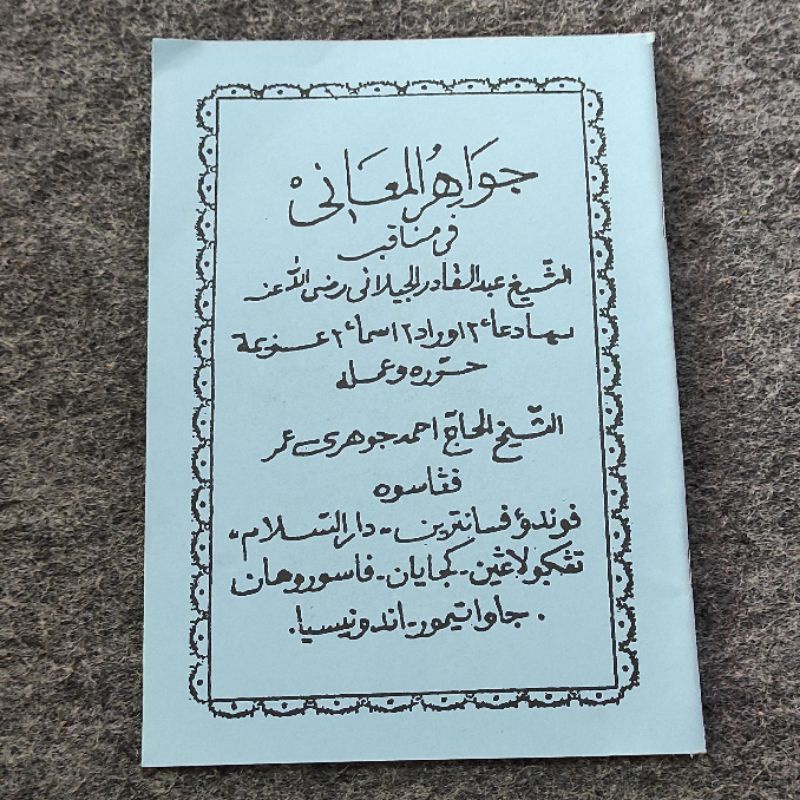 جَوَاهِرُ المَعَانِى
فى مناقب
الشّيخ عبد القادر الجيلانى رضى اللّٰه عنه
بهادعاء٢ اوراد٢ اسماء٢ عزيمة
حرّره وعمله
الشّيخ الحاج احمد جوهرى عمر
فڠاسوه
فوندوء فسانترين - دار السّلام -
تڠكولاڠين - كجايان - فاسوروهان
. جاوا تيمور - اندونيسيا .